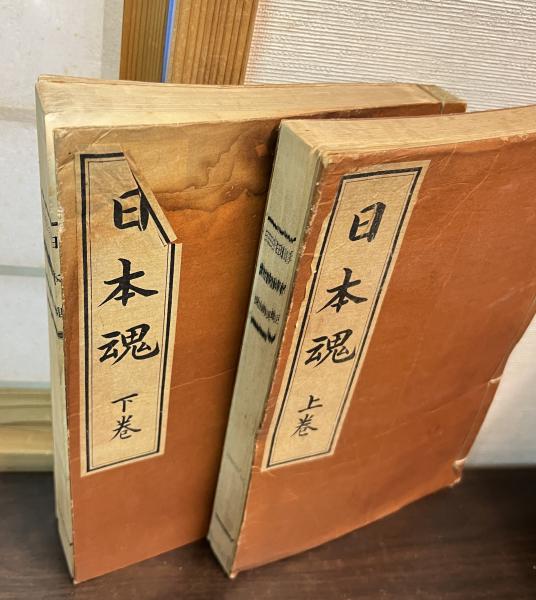 日本魂
下巻
日本魂
上巻